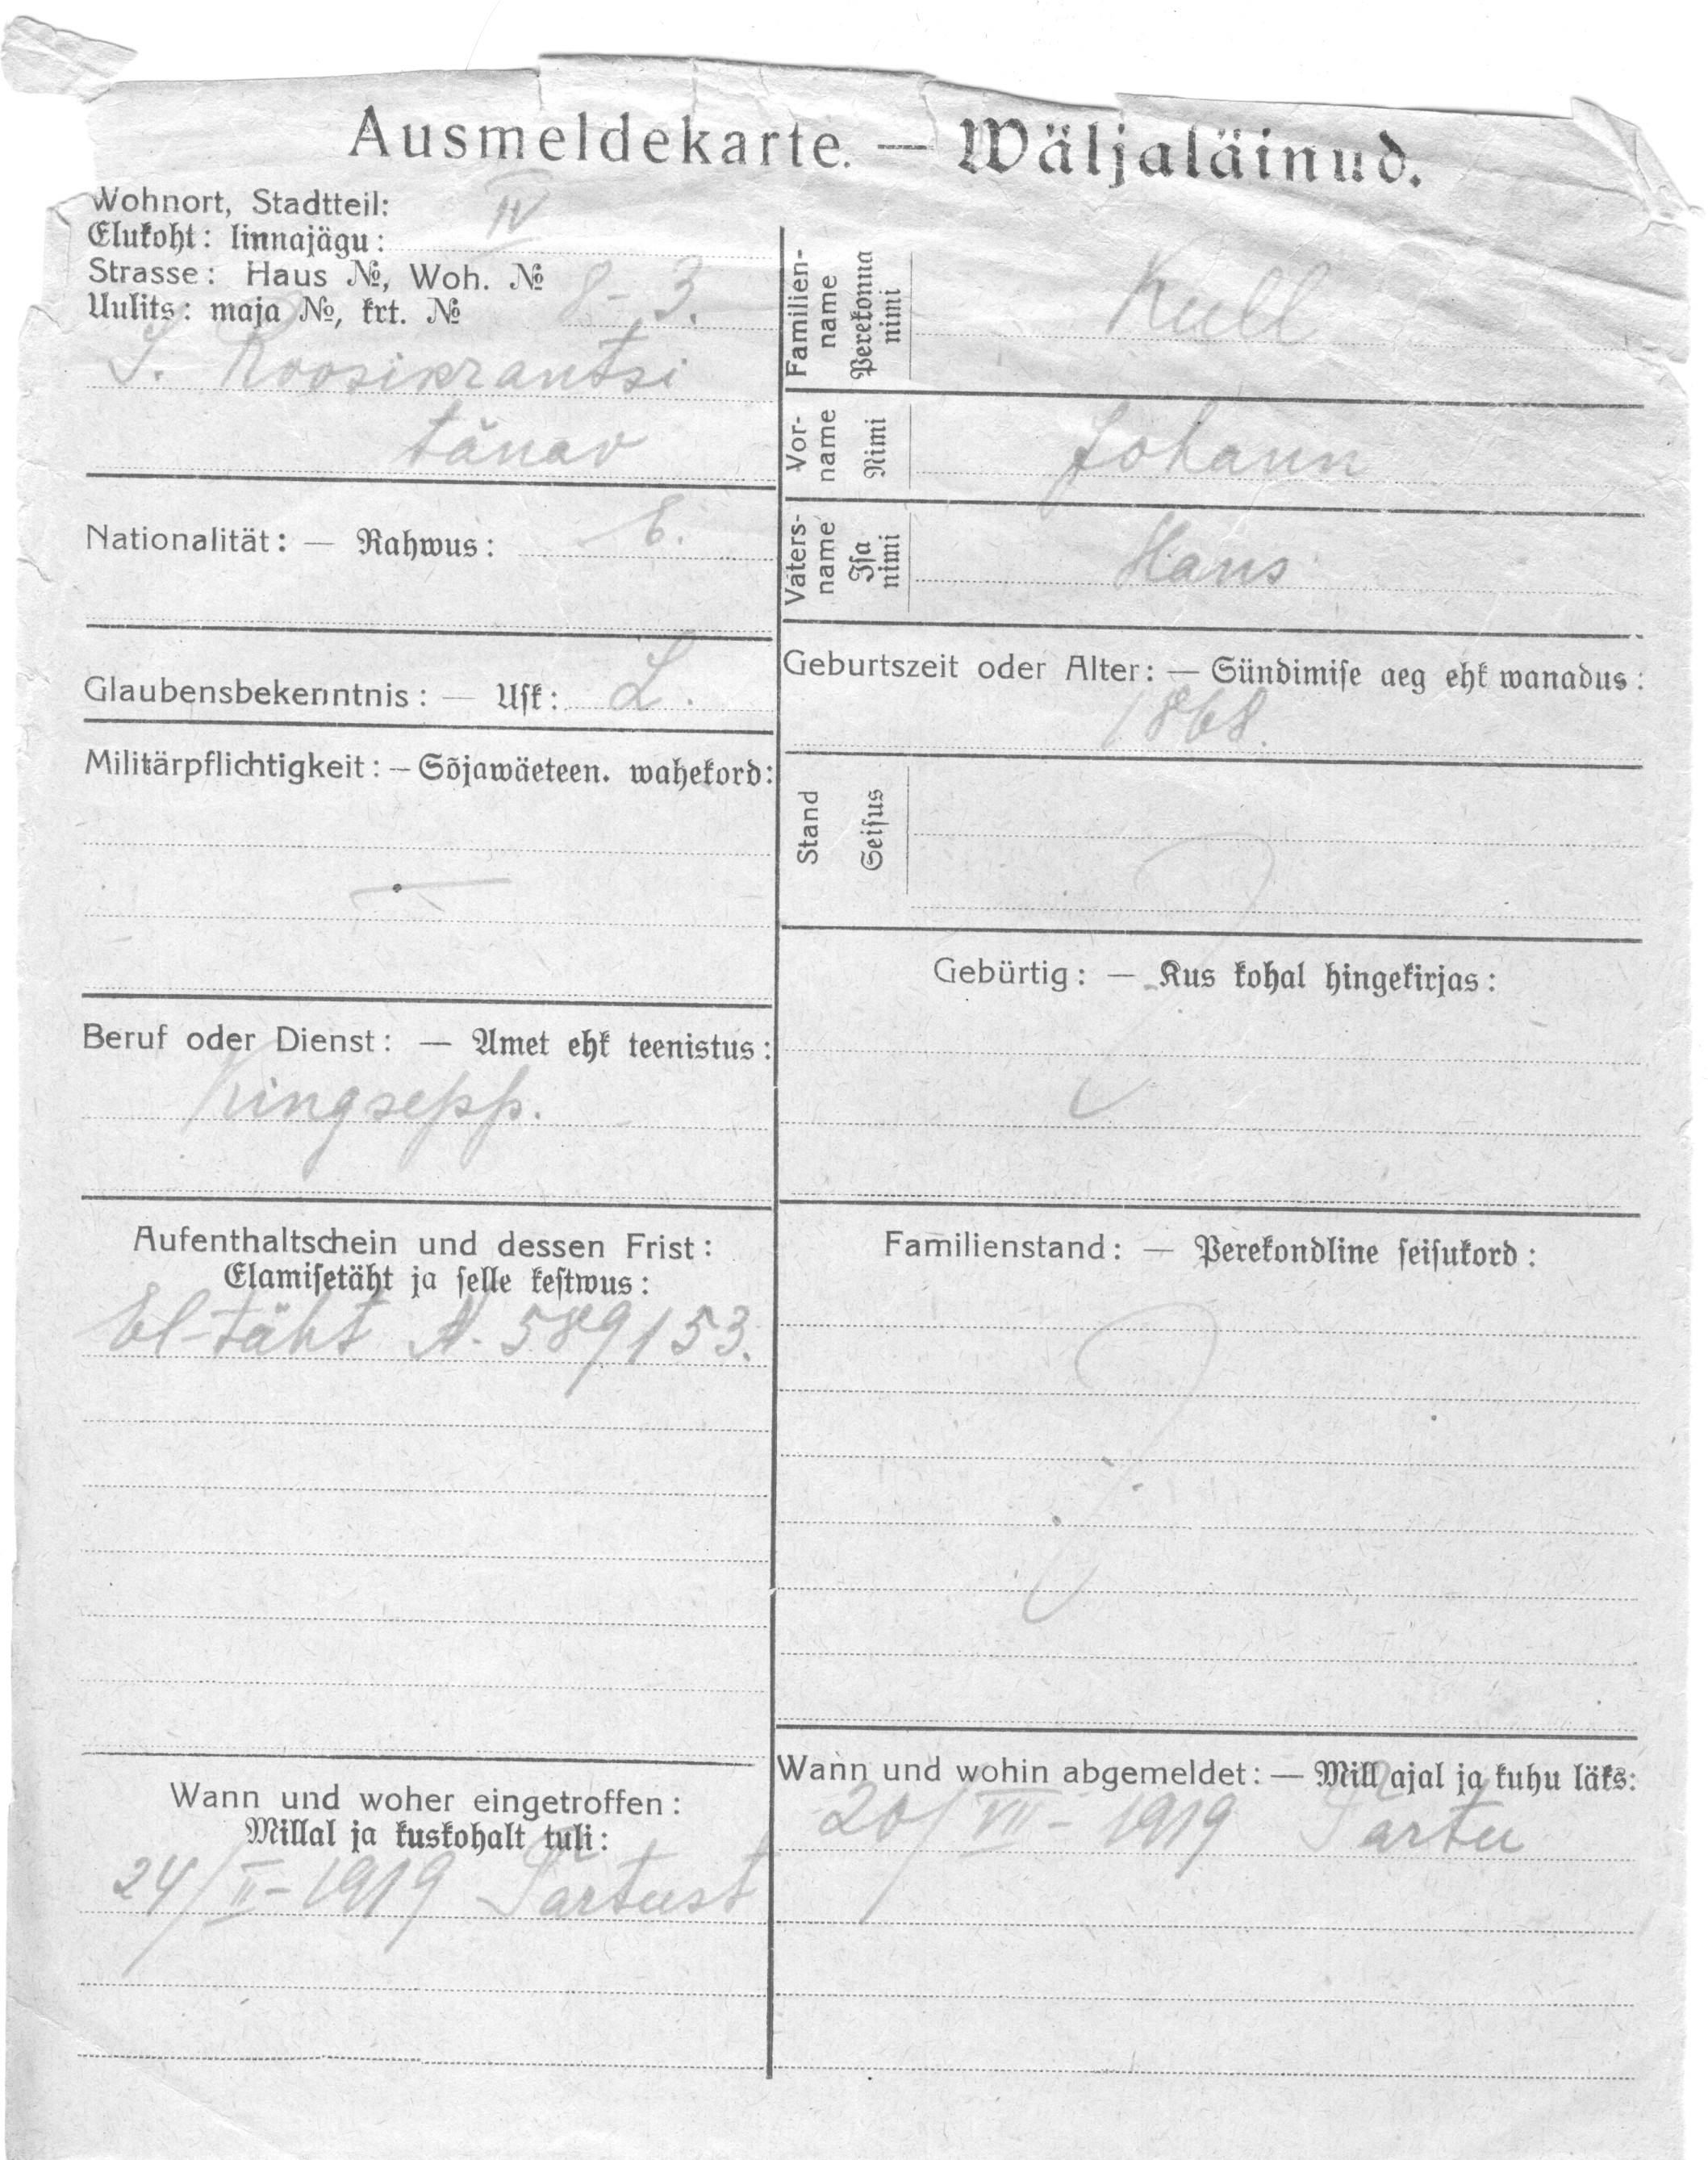 Ausmeldekarte. — Wäljaläinud.
Wohnort, Stadtteil:
Elukoht: linnajägu: IV
Strasse: Haus №, Woh. №
Uulits: maja №, krt. № 8-3.
S. Roosikrantsi
tänav
Nationalität: — Rahwus: E.
Glaubensbekenntnis: — Uſk: L.
Militärpflichtigkeit: — Sõjawäeteen. wahekord:
—
Beruf oder Dienst: — Amet ehk teenistus:
Kingsepp.
Aufenthaltschein und dessen Frist:
Elamiſetäht ja ſelle keſtwus:
El-täht A. 589153.
Wann und woher eingetroffen:
Millal ja kuskohalt tuli:
24/II-1919 Tartust
Familien-
name
Perekonna
nimi
Kull
Vor-
name
Nimi
Johann
Vaters-
name
Iſa
nimi
Hans
Geburtszeit oder Alter: — Sündimiſe aeg ehk wanadus:
1868.
Stand
Seiſus
Gebürtig: — Kus kohal hingekirjas:
Familienstand: — Perekondline ſeiſukord:
Wann und wohin abgemeldet: — Mill ajal ja kuhu läks:
20/VII-1919 Tartu